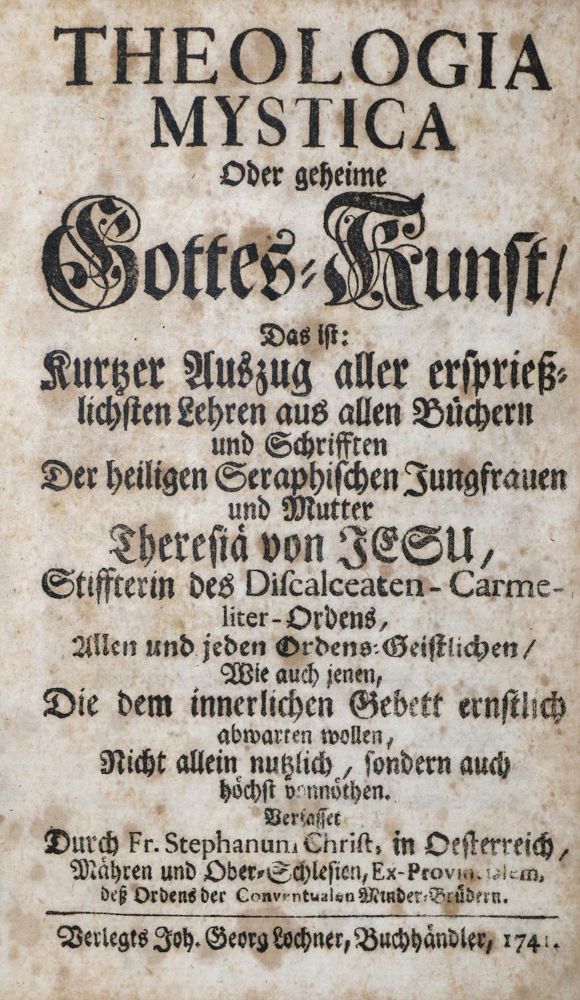 THEOLOGIA
MYSTICA
Oder geheime
Gottes-Kunst/
Das ist:
Kurtzer Auszug aller ersprieß-
lichsten Lehren aus allen Büchern
und Schrifften
Der heiligen Seraphischen Jungfrauen
und Mutter
Theresiä von JESU,
Stiffterin des Discalceaten-Carme-
liter-Ordens,
Allen und jeden Ordens-Geistlichen/
Wie auch jenen,
Die dem innerlichen Gebett ernstlich
abwarten wollen,
Nicht allein nutzlich, sondern auch
höchst vonnöthen.
Verfasset
Durch Fr. Stephanum Christ, in Oesterreich,
Mähren und Ober-Schlesien, Ex-Provincialem,
deß Ordens der Conventualen Minder-Brüdern.
Verlegts Joh. Georg Lochner, Buchhändler, 1741.